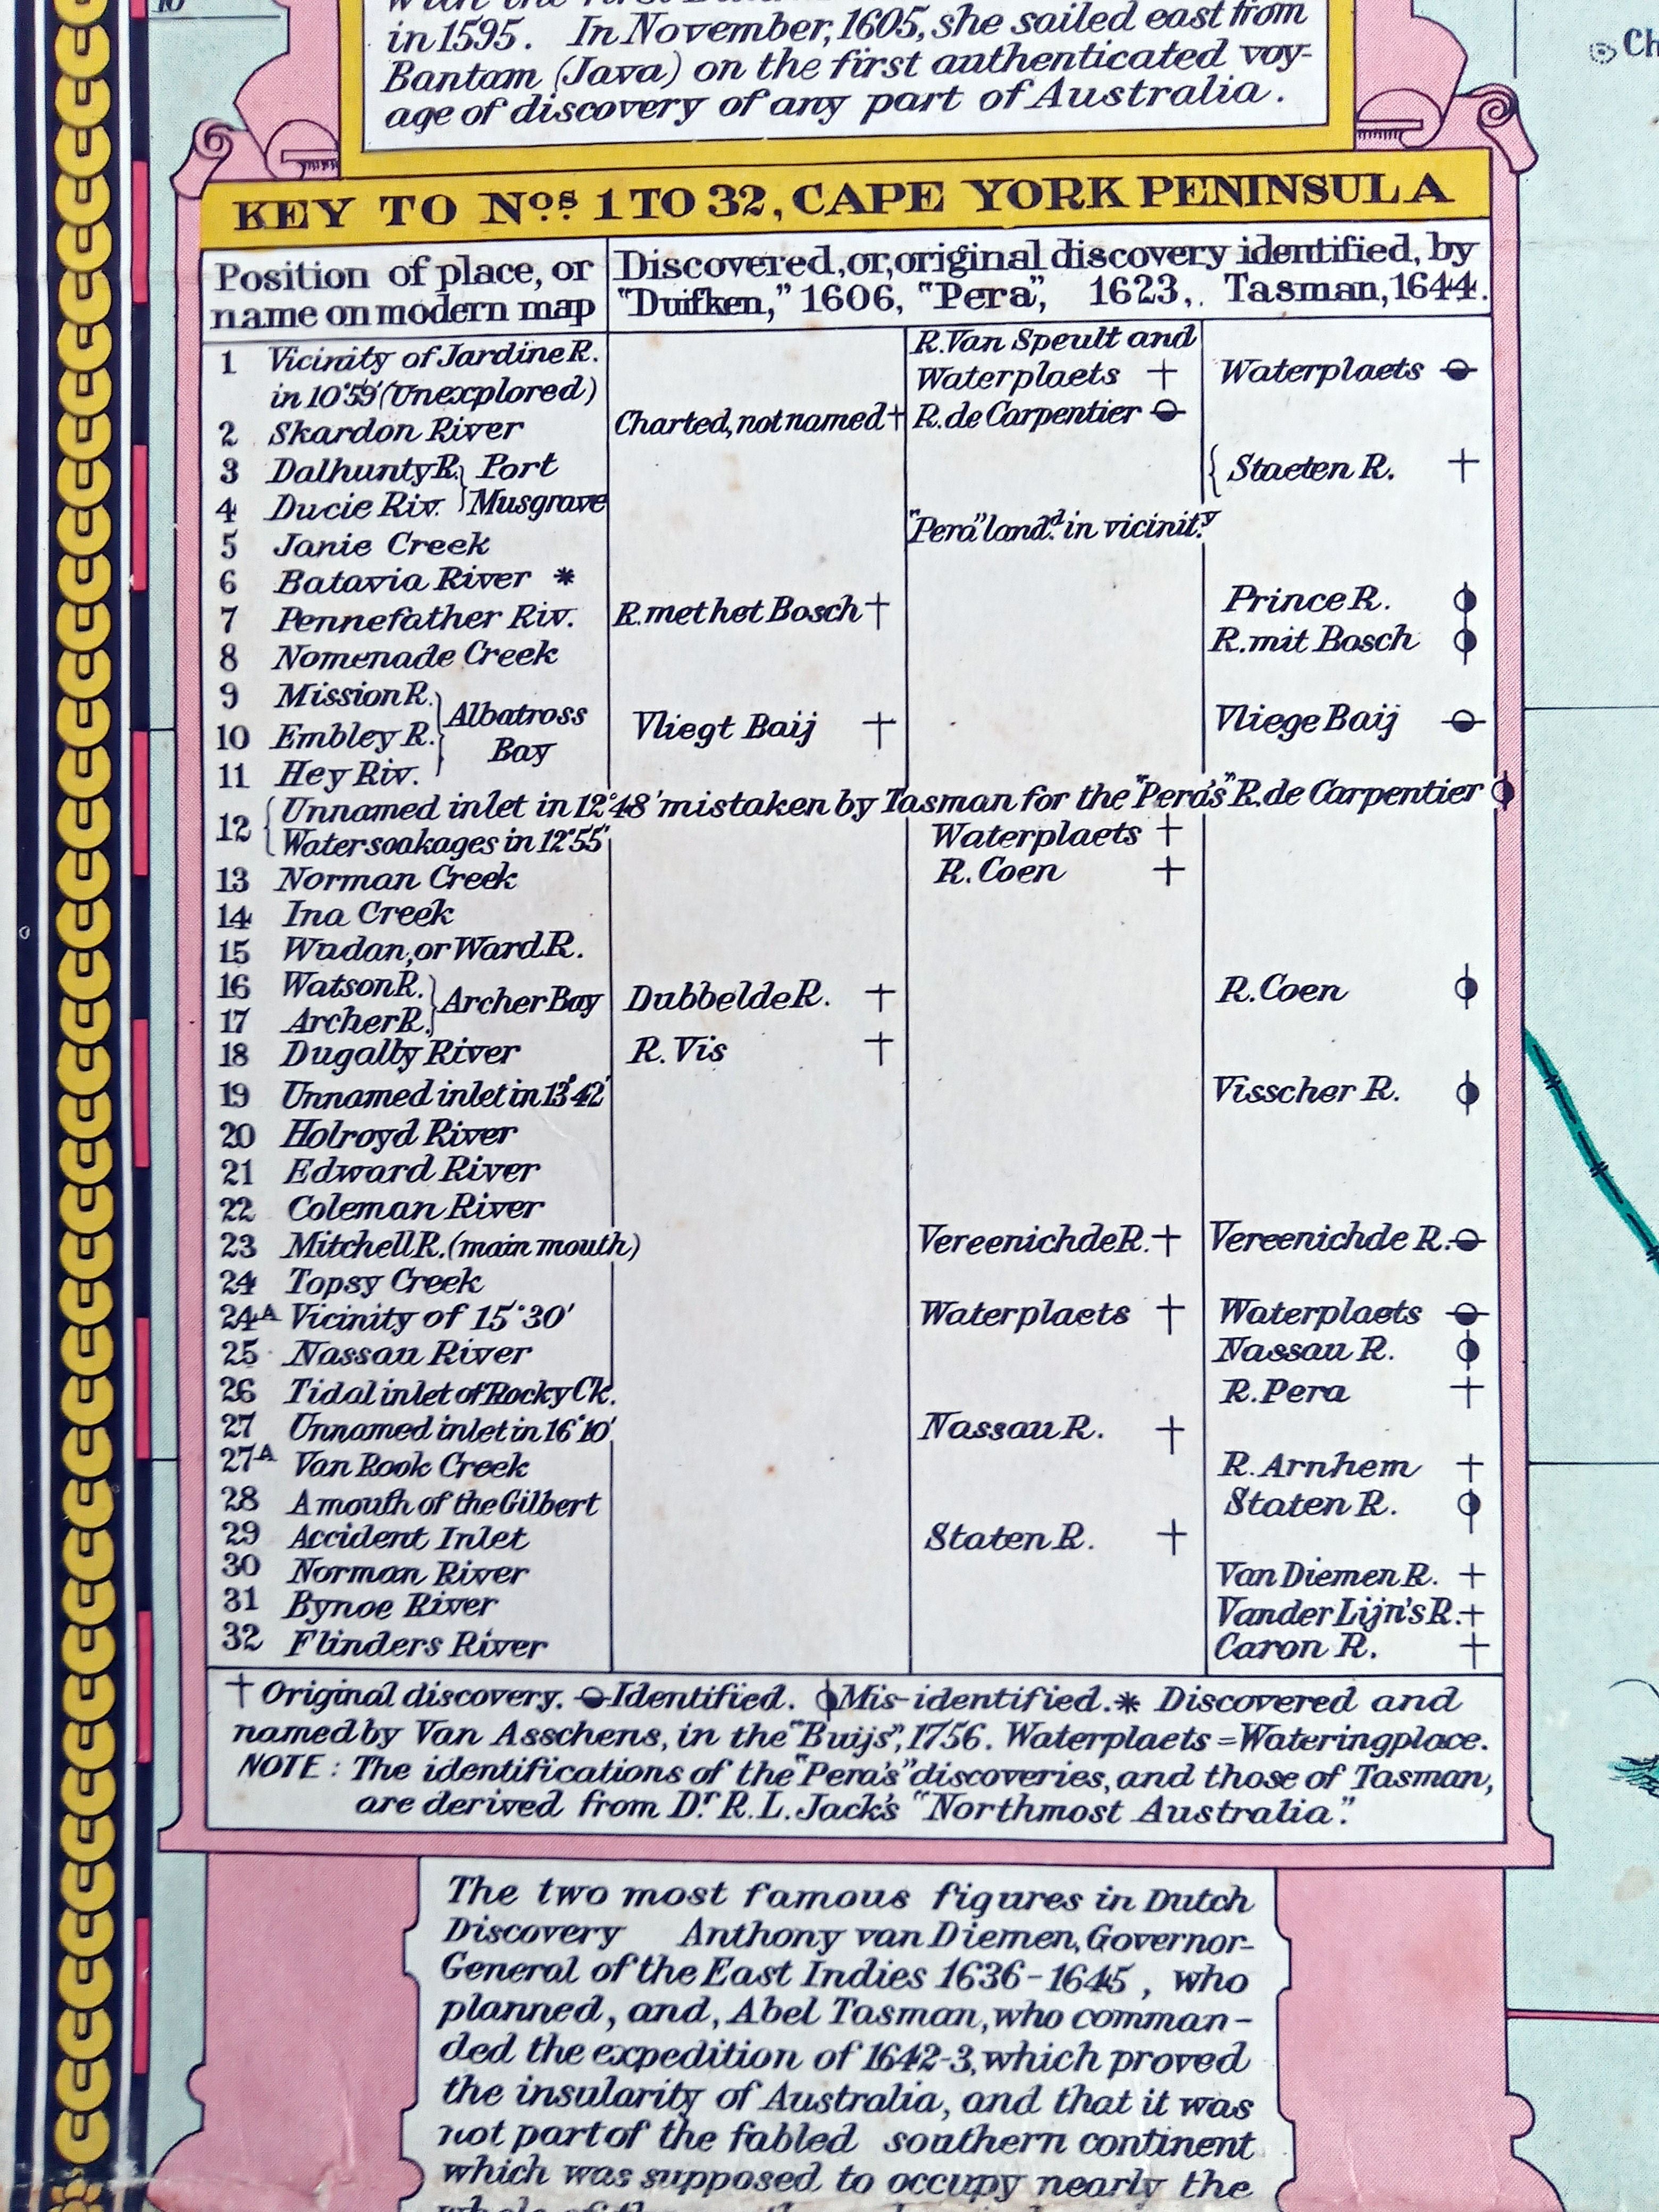 10
in 1595. In November, 1605, she sailed east from
Bantam (Java) on the first authenticated voy-
age of discovery of any part of Australia.
Ch
KEY TO Nos. 1 TO 32, CAPE YORK PENINSULA
Position of place, or
name on modern map
Discovered, or, original discovery identified, by
"Duifken," 1606, "Pera", 1623,. Tasman, 1644.
1 Vicinity of Jardine R. R. Van Speult and
in 10°59' (Unexplored) Waterplaets † Waterplaets ⦵
2 Skardon River Charted, not named † R. de Carpentier ⦵
3 Dalhunty R. } Port { Staeten R. †
4 Ducie Riv. } Musgrave
5 Janie Creek "Pera" land.d in vicinit.y
6 Batavia River * Prince R. ⌽
7 Pennefather Riv. R. met het Bosch † R. mit Bosch ⌽
8 Nomenade Creek
9 Mission R. } Albatross
10 Embley R. } Bay Vliegt Baij † Vliege Baij ⦵
11 Hey Riv. }
12 { Unnamed inlet in 12°48' mistaken by Tasman for the "Pera's" R. de Carpentier ⌽
Water soakages in 12°55' Waterplaets †
13 Norman Creek R. Coen †
14 Ina Creek
15 Wudan, or Ward R.
16 Watson R. } Archer Bay Dubbelde R. † R. Coen ⌽
17 Archer R. }
18 Dugally River R. Vis †
19 Unnamed inlet in 13°42' Visscher R. ⌽
20 Holroyd River
21 Edward River
22 Coleman River
23 Mitchell R. (main mouth) Vereenichde R. † Vereenichde R. ⦵
24 Topsy Creek
24A Vicinity of 15°30' Waterplaets † Waterplaets ⦵
25 Nassau River Nassau R. ⌽
26 Tidal inlet of Rocky Ck. R. Pera †
27 Unnamed inlet in 16°10' Nassau R. †
27A Van Rook Creek R. Arnhem †
28 A mouth of the Gilbert Staten R. ⌽
29 Accident Inlet Staten R. †
30 Norman River Van Diemen R. †
31 Bynoe River Vander Lijn's R. †
32 Flinders River Caron R. †
† Original discovery. ⦵ Identified. ⌽ Mis-identified. * Discovered and
named by Van Asschens, in the "Buijs", 1756. Waterplaets = Wateringplace.
NOTE: The identifications of the "Pera's" discoveries, and those of Tasman,
are derived from Dr. R. L. Jack's "Northmost Australia".
The two most famous figures in Dutch
Discovery Anthony van Diemen, Governor-
General of the East Indies 1636-1645, who
planned, and, Abel Tasman, who comman-
ded the expedition of 1642-3, which proved
the insularity of Australia, and that it was
not part of the fabled southern continent
which was supposed to occupy nearly the